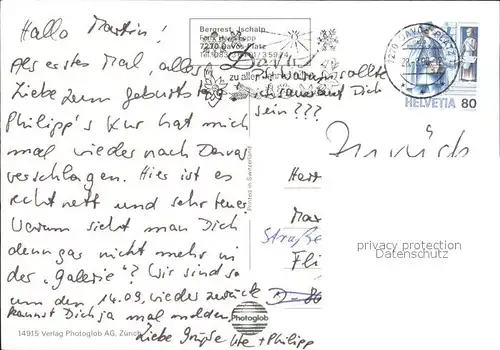 Hallo Martin!
Als erstes Mal, alles
Liebe zum Geburtstag
Philipp's Kur hat mich
mal wieder nach Davos
verschlagen. Hier ist es
echt nett und sehr teuer.
Warum sieht man Dich
denn gar nicht mehr in
der "Galerie"? Wir sind so
um den 14.09. wieder zurück
kannst Dich ja mal melden,
Liebe Grüße Ute + Philipp
P.S. warum sollte
ich sauer auf Dich
sein???
Bergrest. Ischalp
7270 Davos Platz
Davos
zu allen
7270 DAVOS PLATZ 1
HELVETIA 80
Zurück
Herr
Mar
Straße
Fli
D-80
Printed in Switzerland
Photoglob
14915 Verlag Photoglob AG, Zürich
privacy protection
Datenschutz